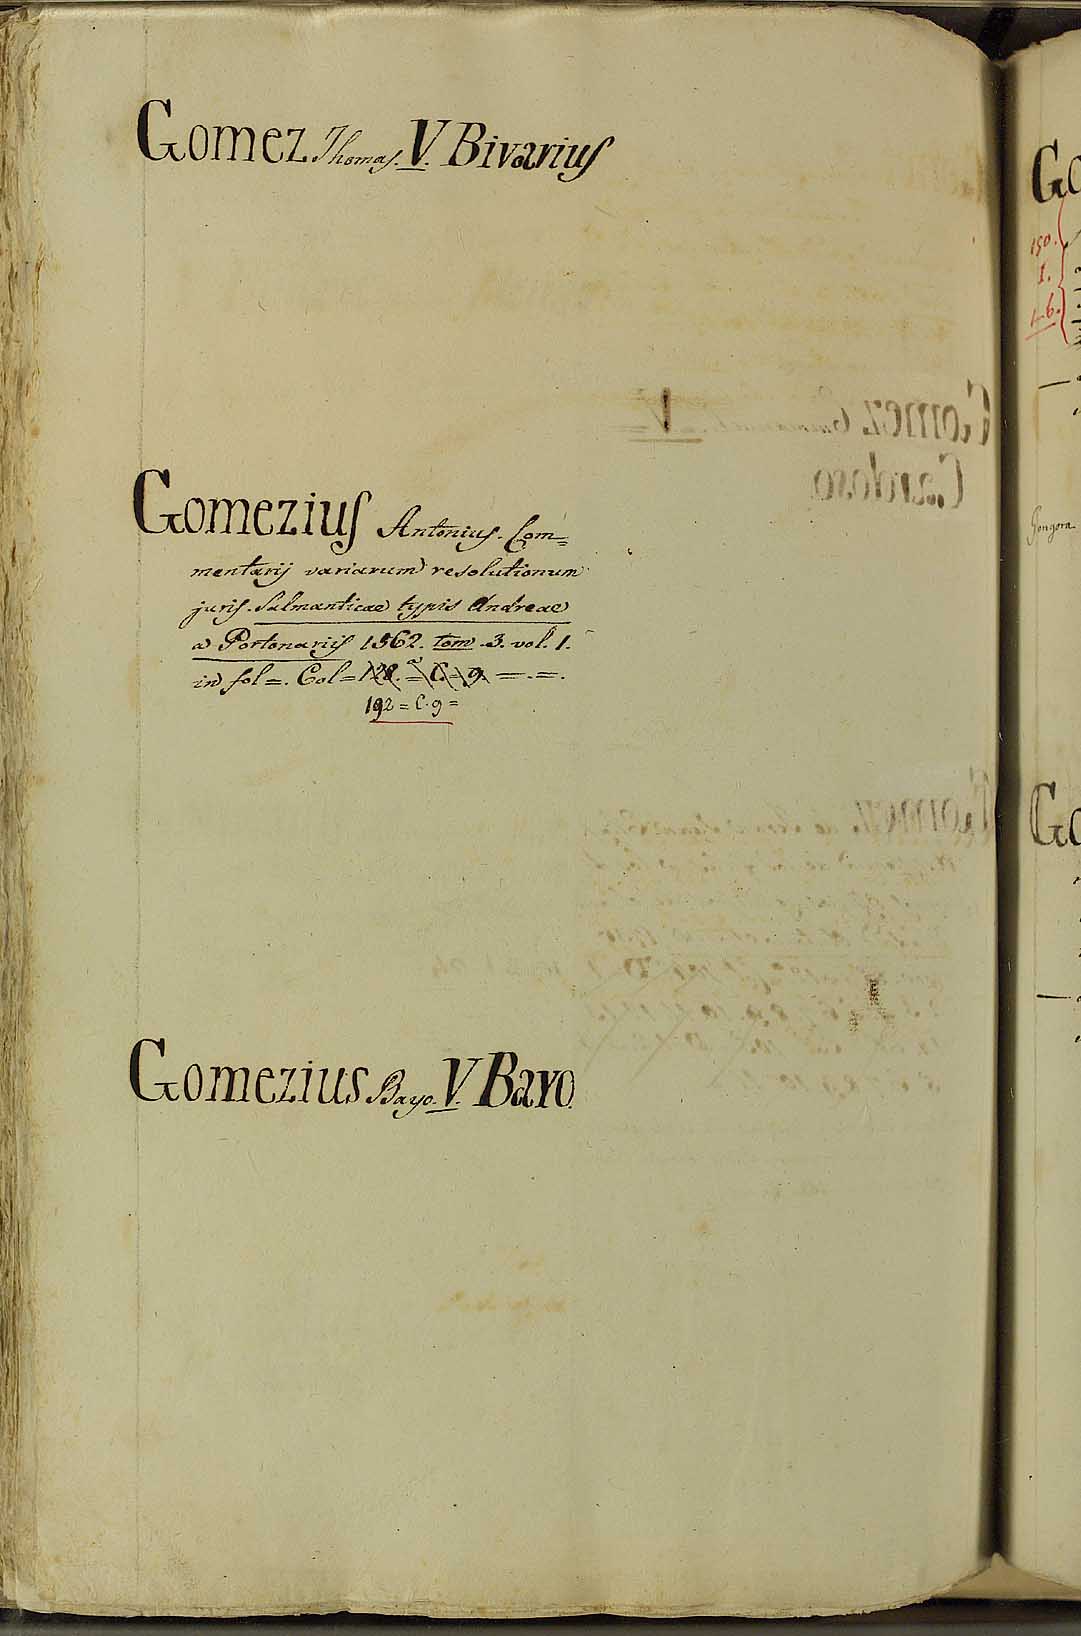 Gomez Thomas. V. Bivarius
Gomezius Antonius. Com=
mentarij variarum resolutionum
juris. Salmanticae typis Andreae
a Portonariis 1562. tom. 3. vol. 1.
in fol=. Col= 128. = C. = 9. =.=.
192 = C. 9 =
Gomezius Bayo. V. Bayo.
Go
150.
I.
1-6.
Gongora
Go